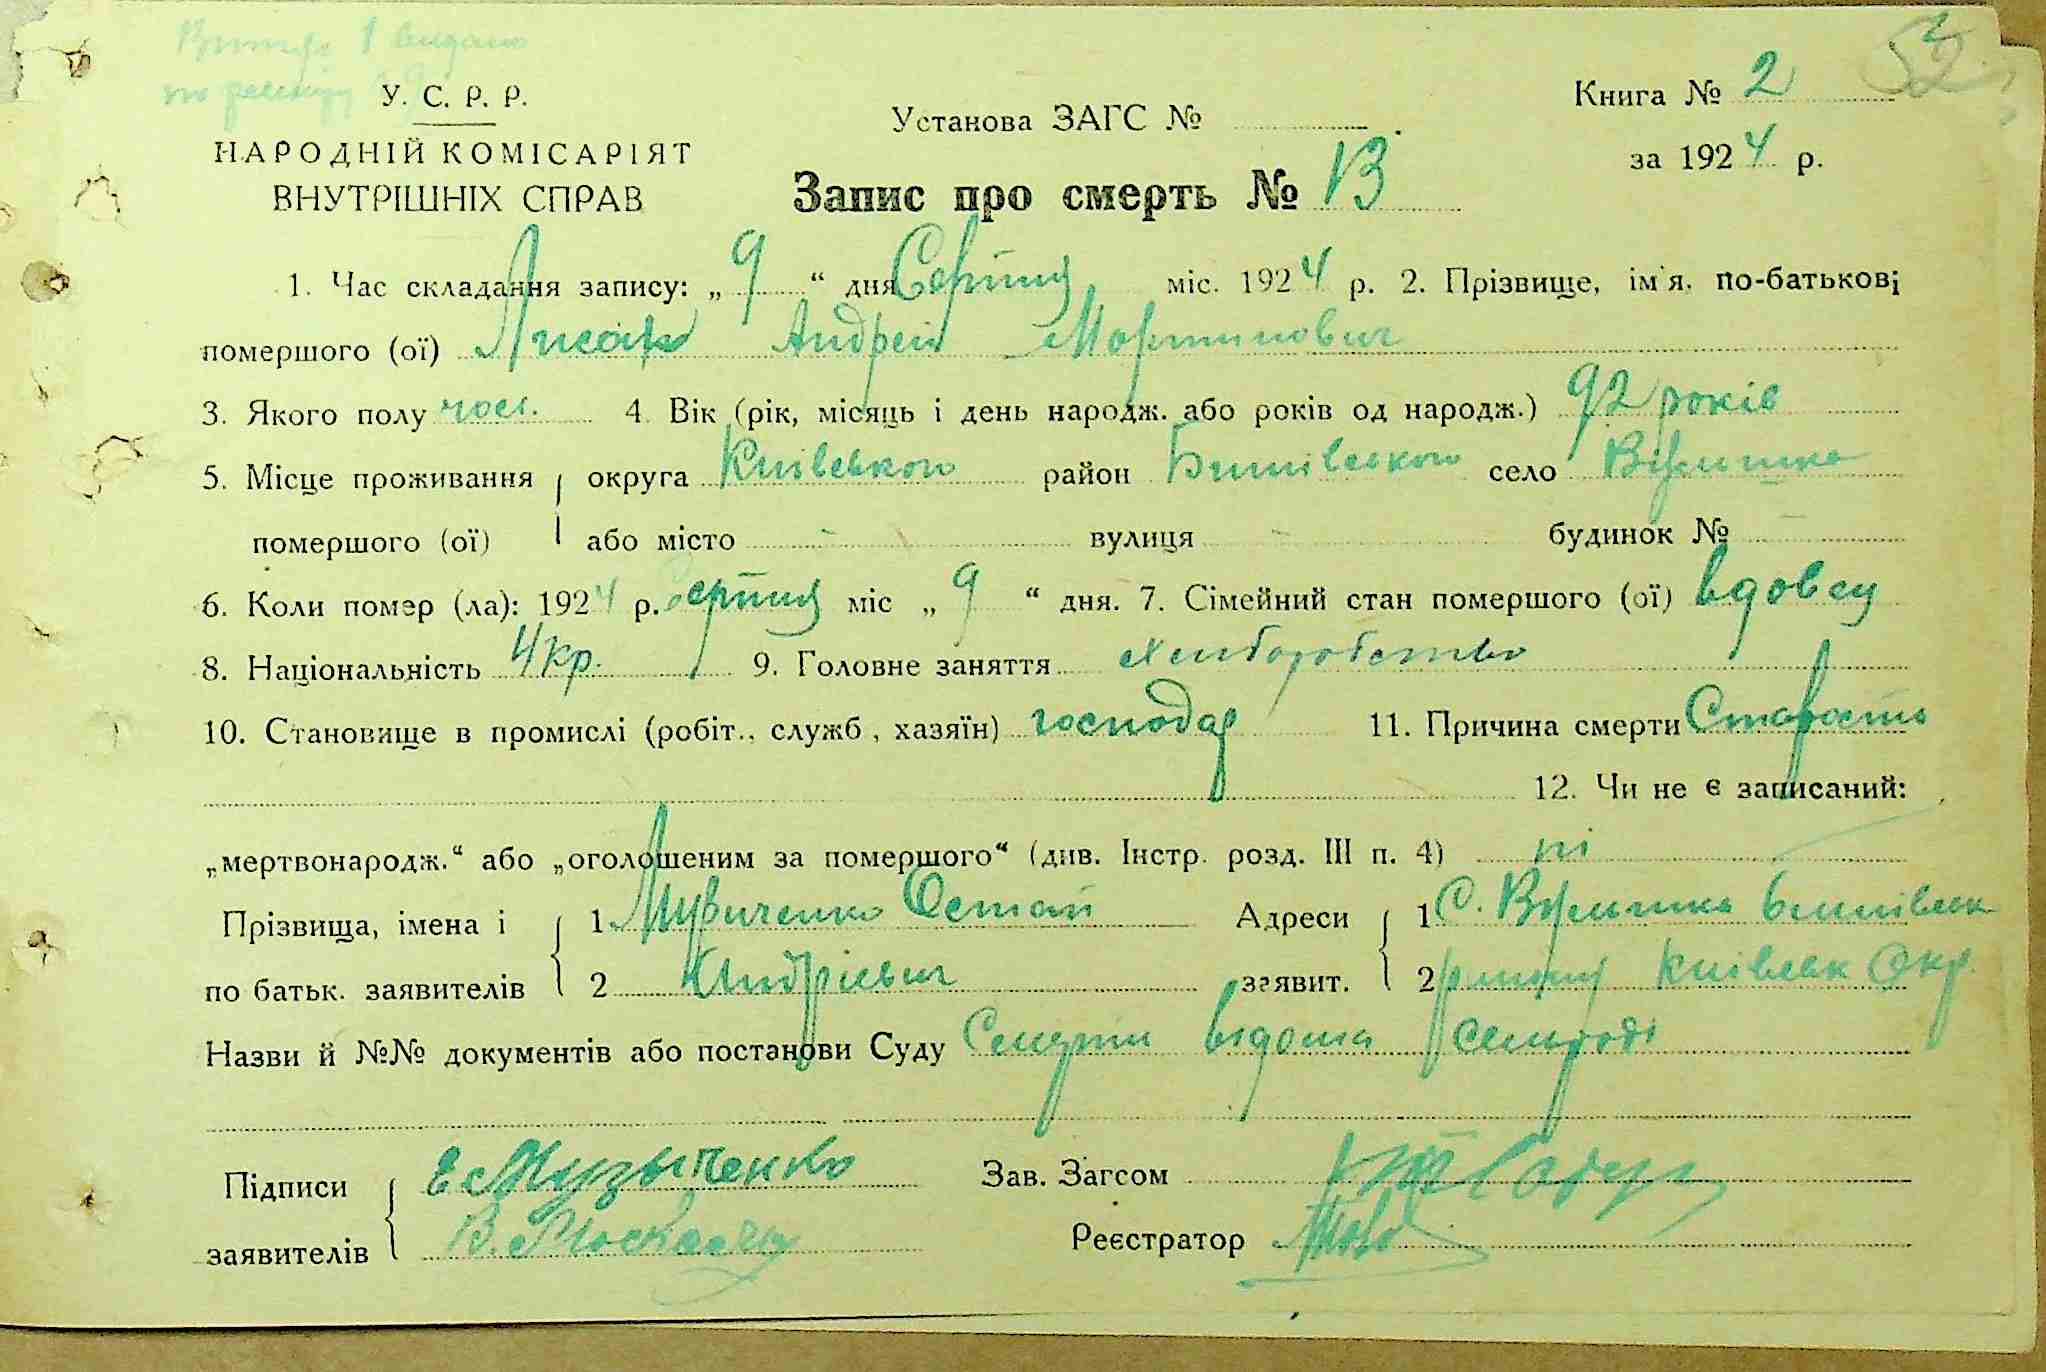 52
У. С. Р. Р.
НАРОДНІЙ КОМІСАРІЯТ
ВНУТРІШНІХ СПРАВ
Установа ЗАГС №
Книга № 2
за 1924 р.
Запис про смерть № 13
1. Час складання запису: „ 9 “ дня Серпня міс. 1924 р. 2. Прізвище, ім'я, по-батькові
помершого (ої) Лисак Андрей Мартинович
3. Якого полу чол. 4. Вік (рік, місяць і день народж. або років од народж.) 92 років
5. Місце проживання округа Київського район село
помершого (ої) або місто вулиця будинок №
6. Коли помер (ла): 1924 р. серпня міс „ 9 “ дня. 7. Сімейний стан помершого (ої) вдовец
8. Національність Укр. 9. Головне заняття хлиборобство
10. Становище в промислі (робіт., служб, хазяїн) господар 11. Причина смерти Старость
12. Чи не є записаний:
„мертвонародж.“ або „оголошеним за помершого“ (див. Інстр. розд. III п. 4) ні
Прізвища, імена і 1 Остап Адреси 1 С.
по батьк. заявителів 2 Андрієвич заявит. 2 району Київськ Окр.
Назви й №№ документів або постанови Суду Смерть відома сельраді
Підписи Музыченко Зав. Загсом
заявителів В. Реєстратор